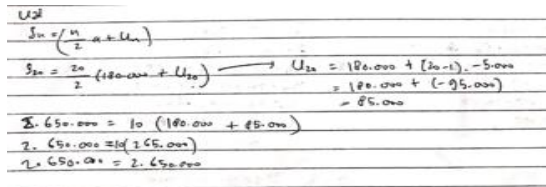 Sn = (n/2 a + Un)
S20 = 20/2 (180.000 + U20) → U20 = 180.000 + (20-1). -5.000
= 180.000 + (-95.000)
= 85.000
2.650.000 = 10 (180.000 + 85.000)
2.650.000 = 10(265.000)
2.650.000 = 2.650.000